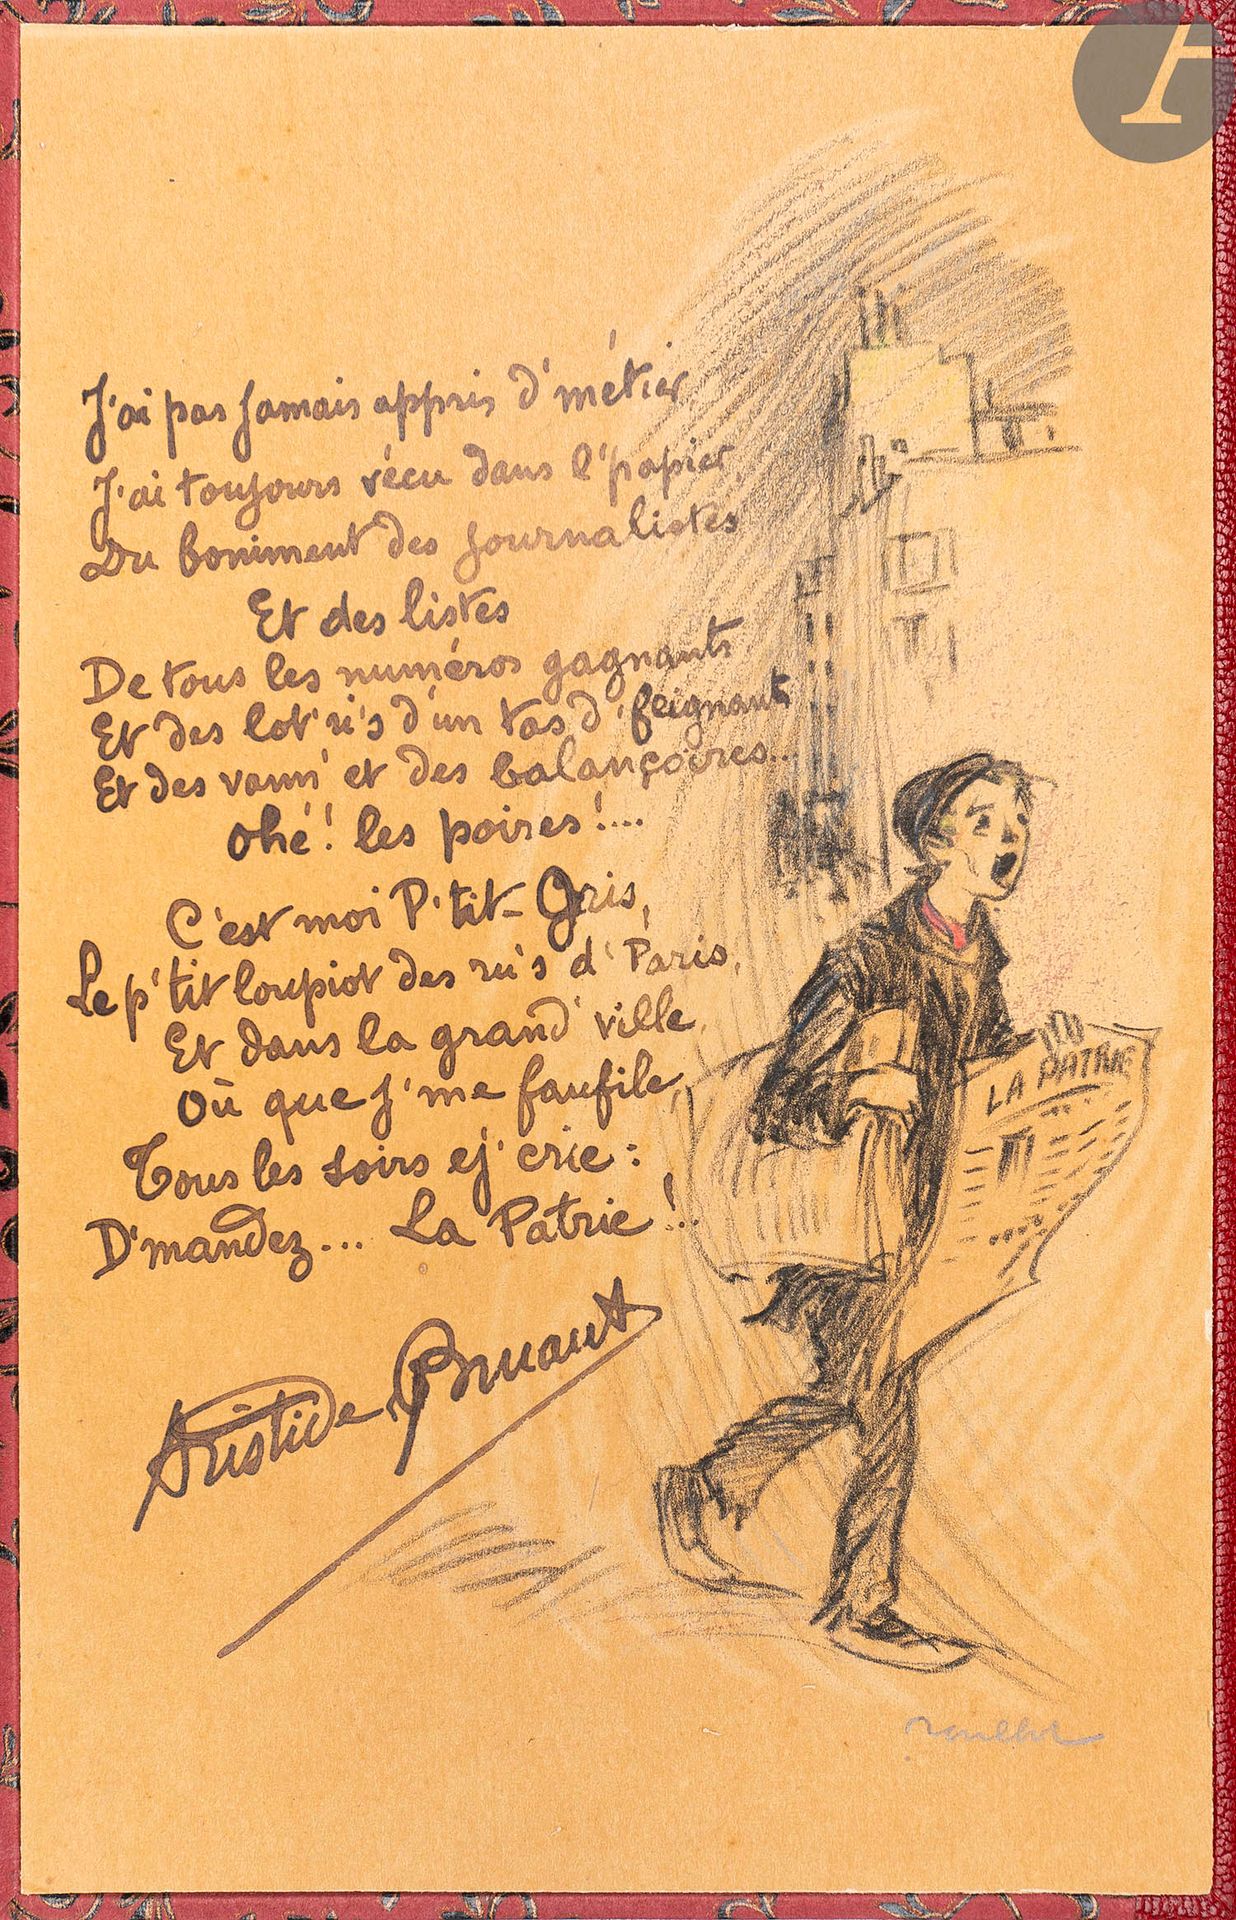 J'ai pas jamais appris d'métier,
J'ai toujours vécu dans l'papier,
Du boniment des journalistes
Et des listes
De tous les numéros gagnants
Et des lot'ri's d'un tas d'feignant
Et des vann' et des balançoires...
Ohé! les poires!...
C'est moi P'tit-Gris,
Le p'tit loupiot des ru's d'Paris,
Et dans la grand' ville,
Où que j'me faufile,
Tous les soirs ej' crie :
D'mandez... La Patrie!..
Aristide Bruant
LA PATRIE
Poulbot
A